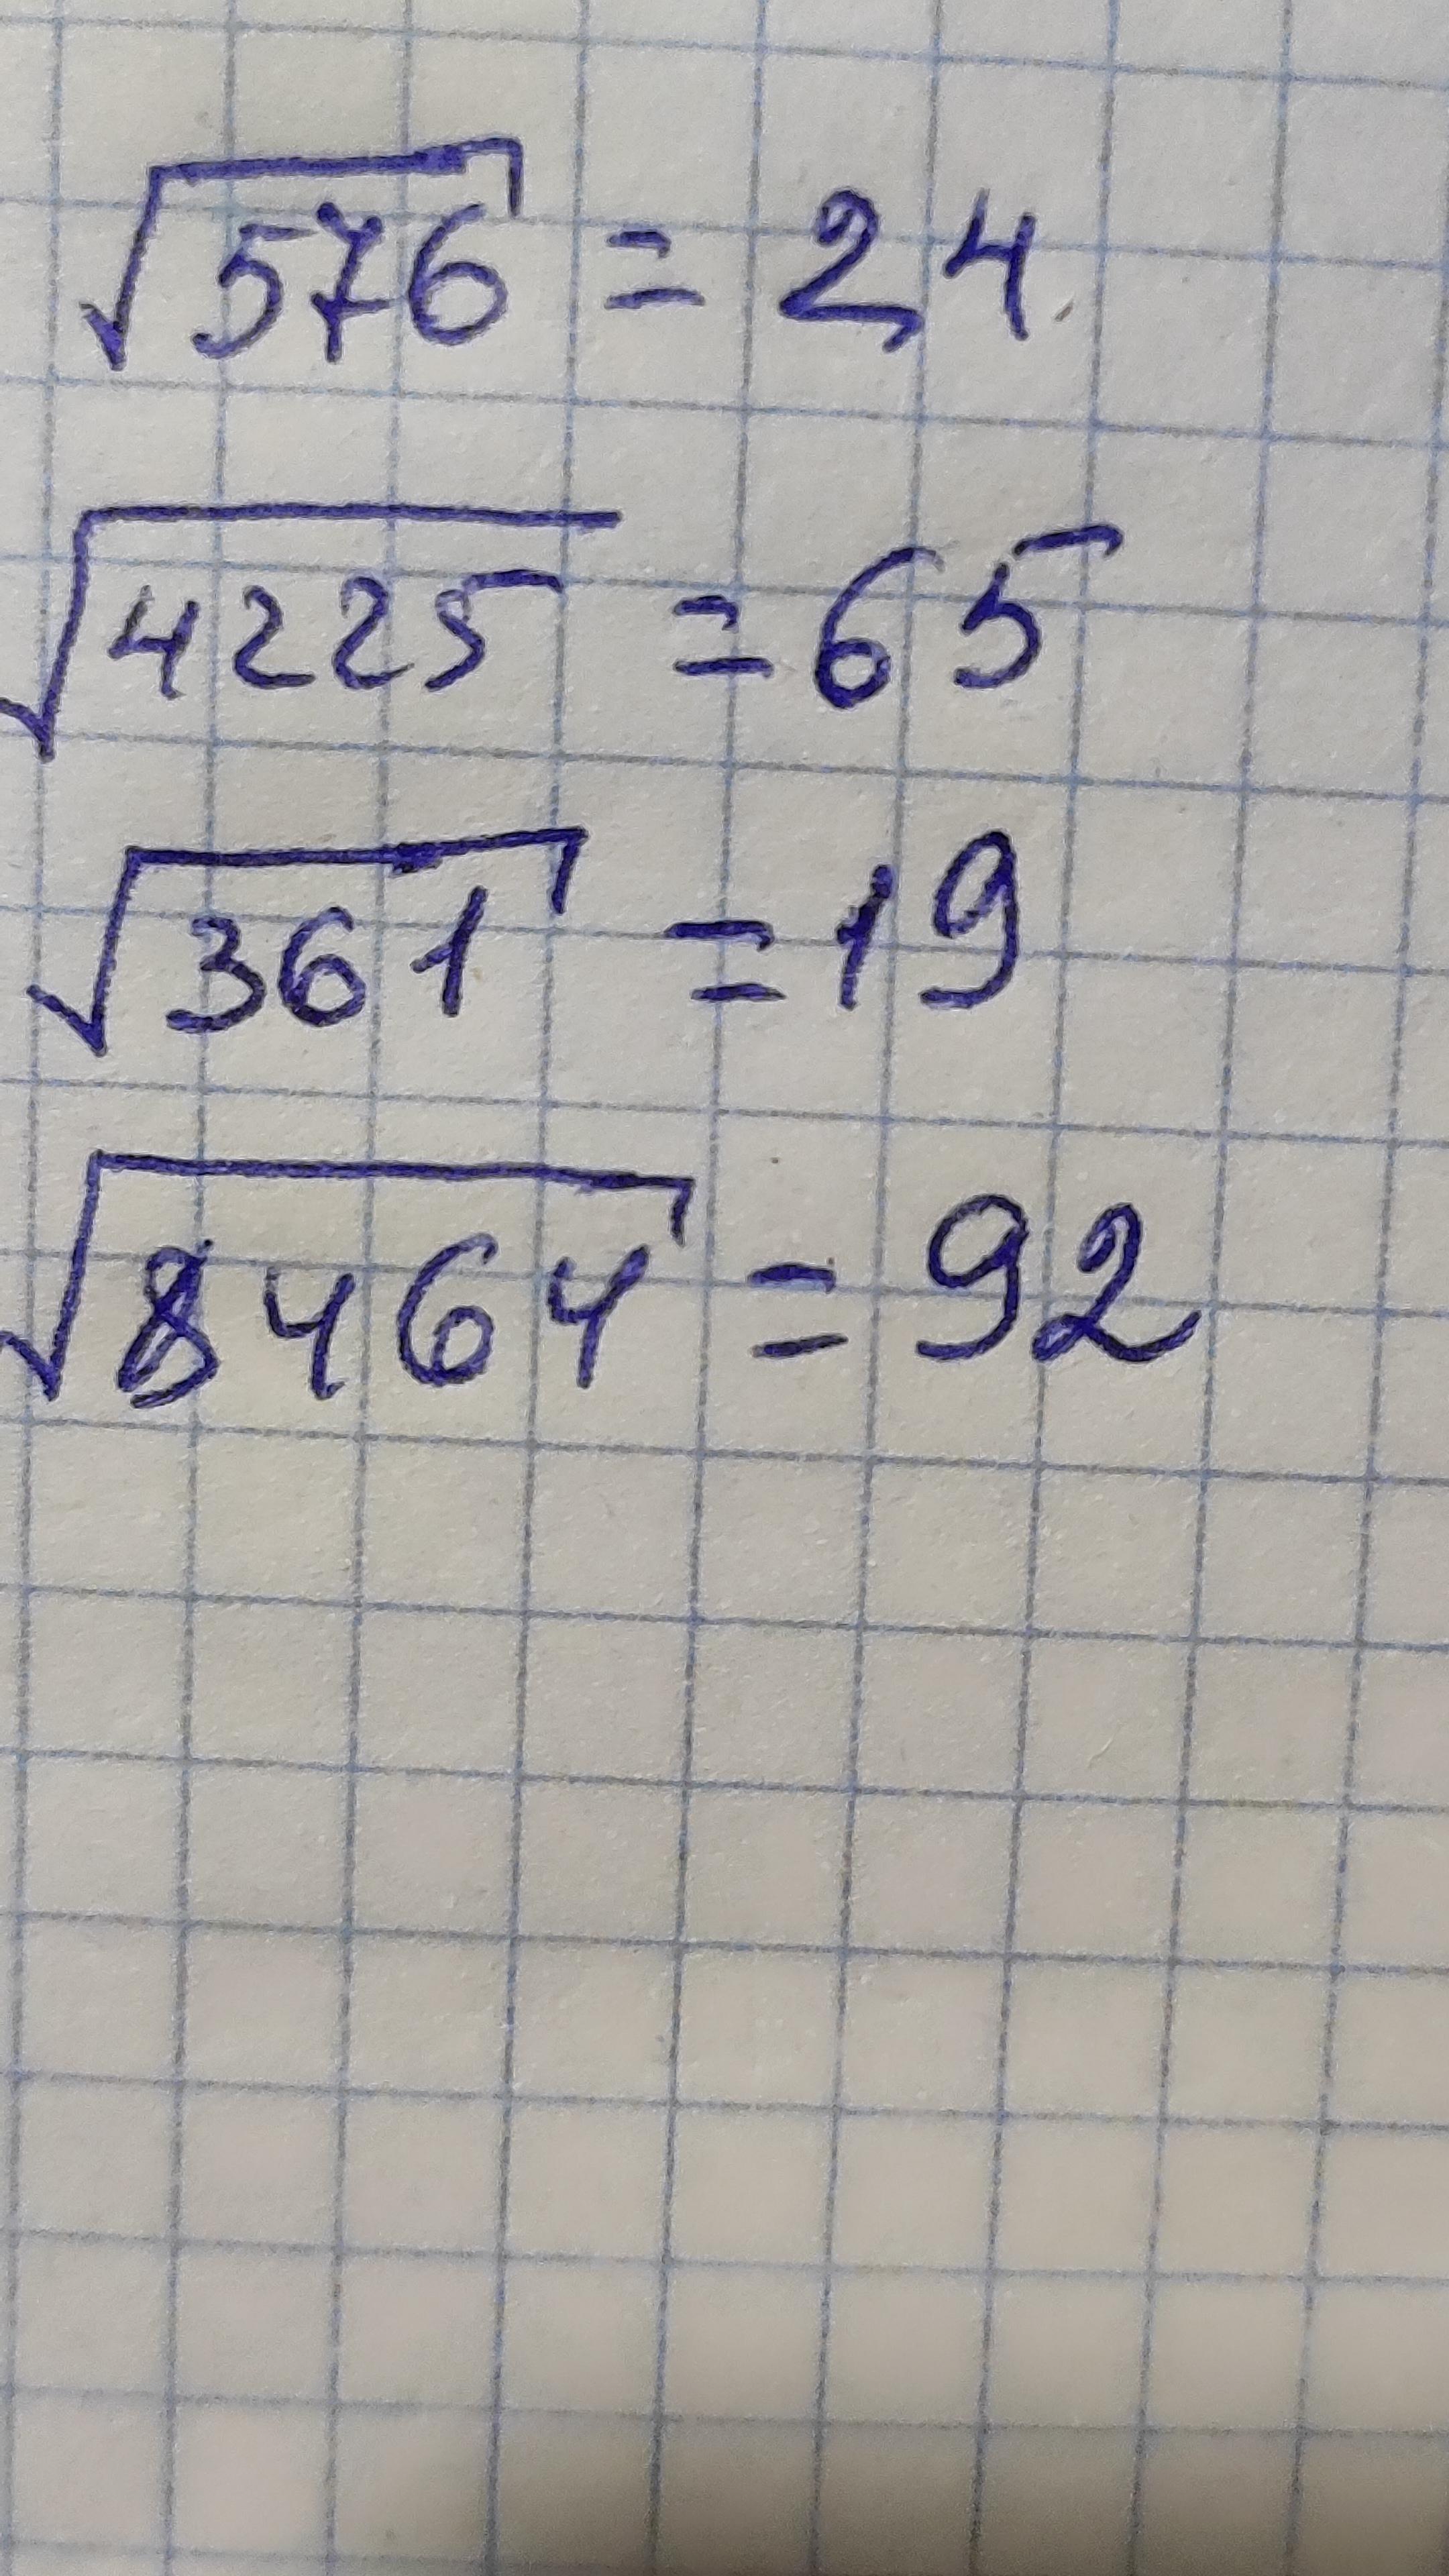 √576 = 24
√4225 = 65
√361 = 19
√8464 = 92